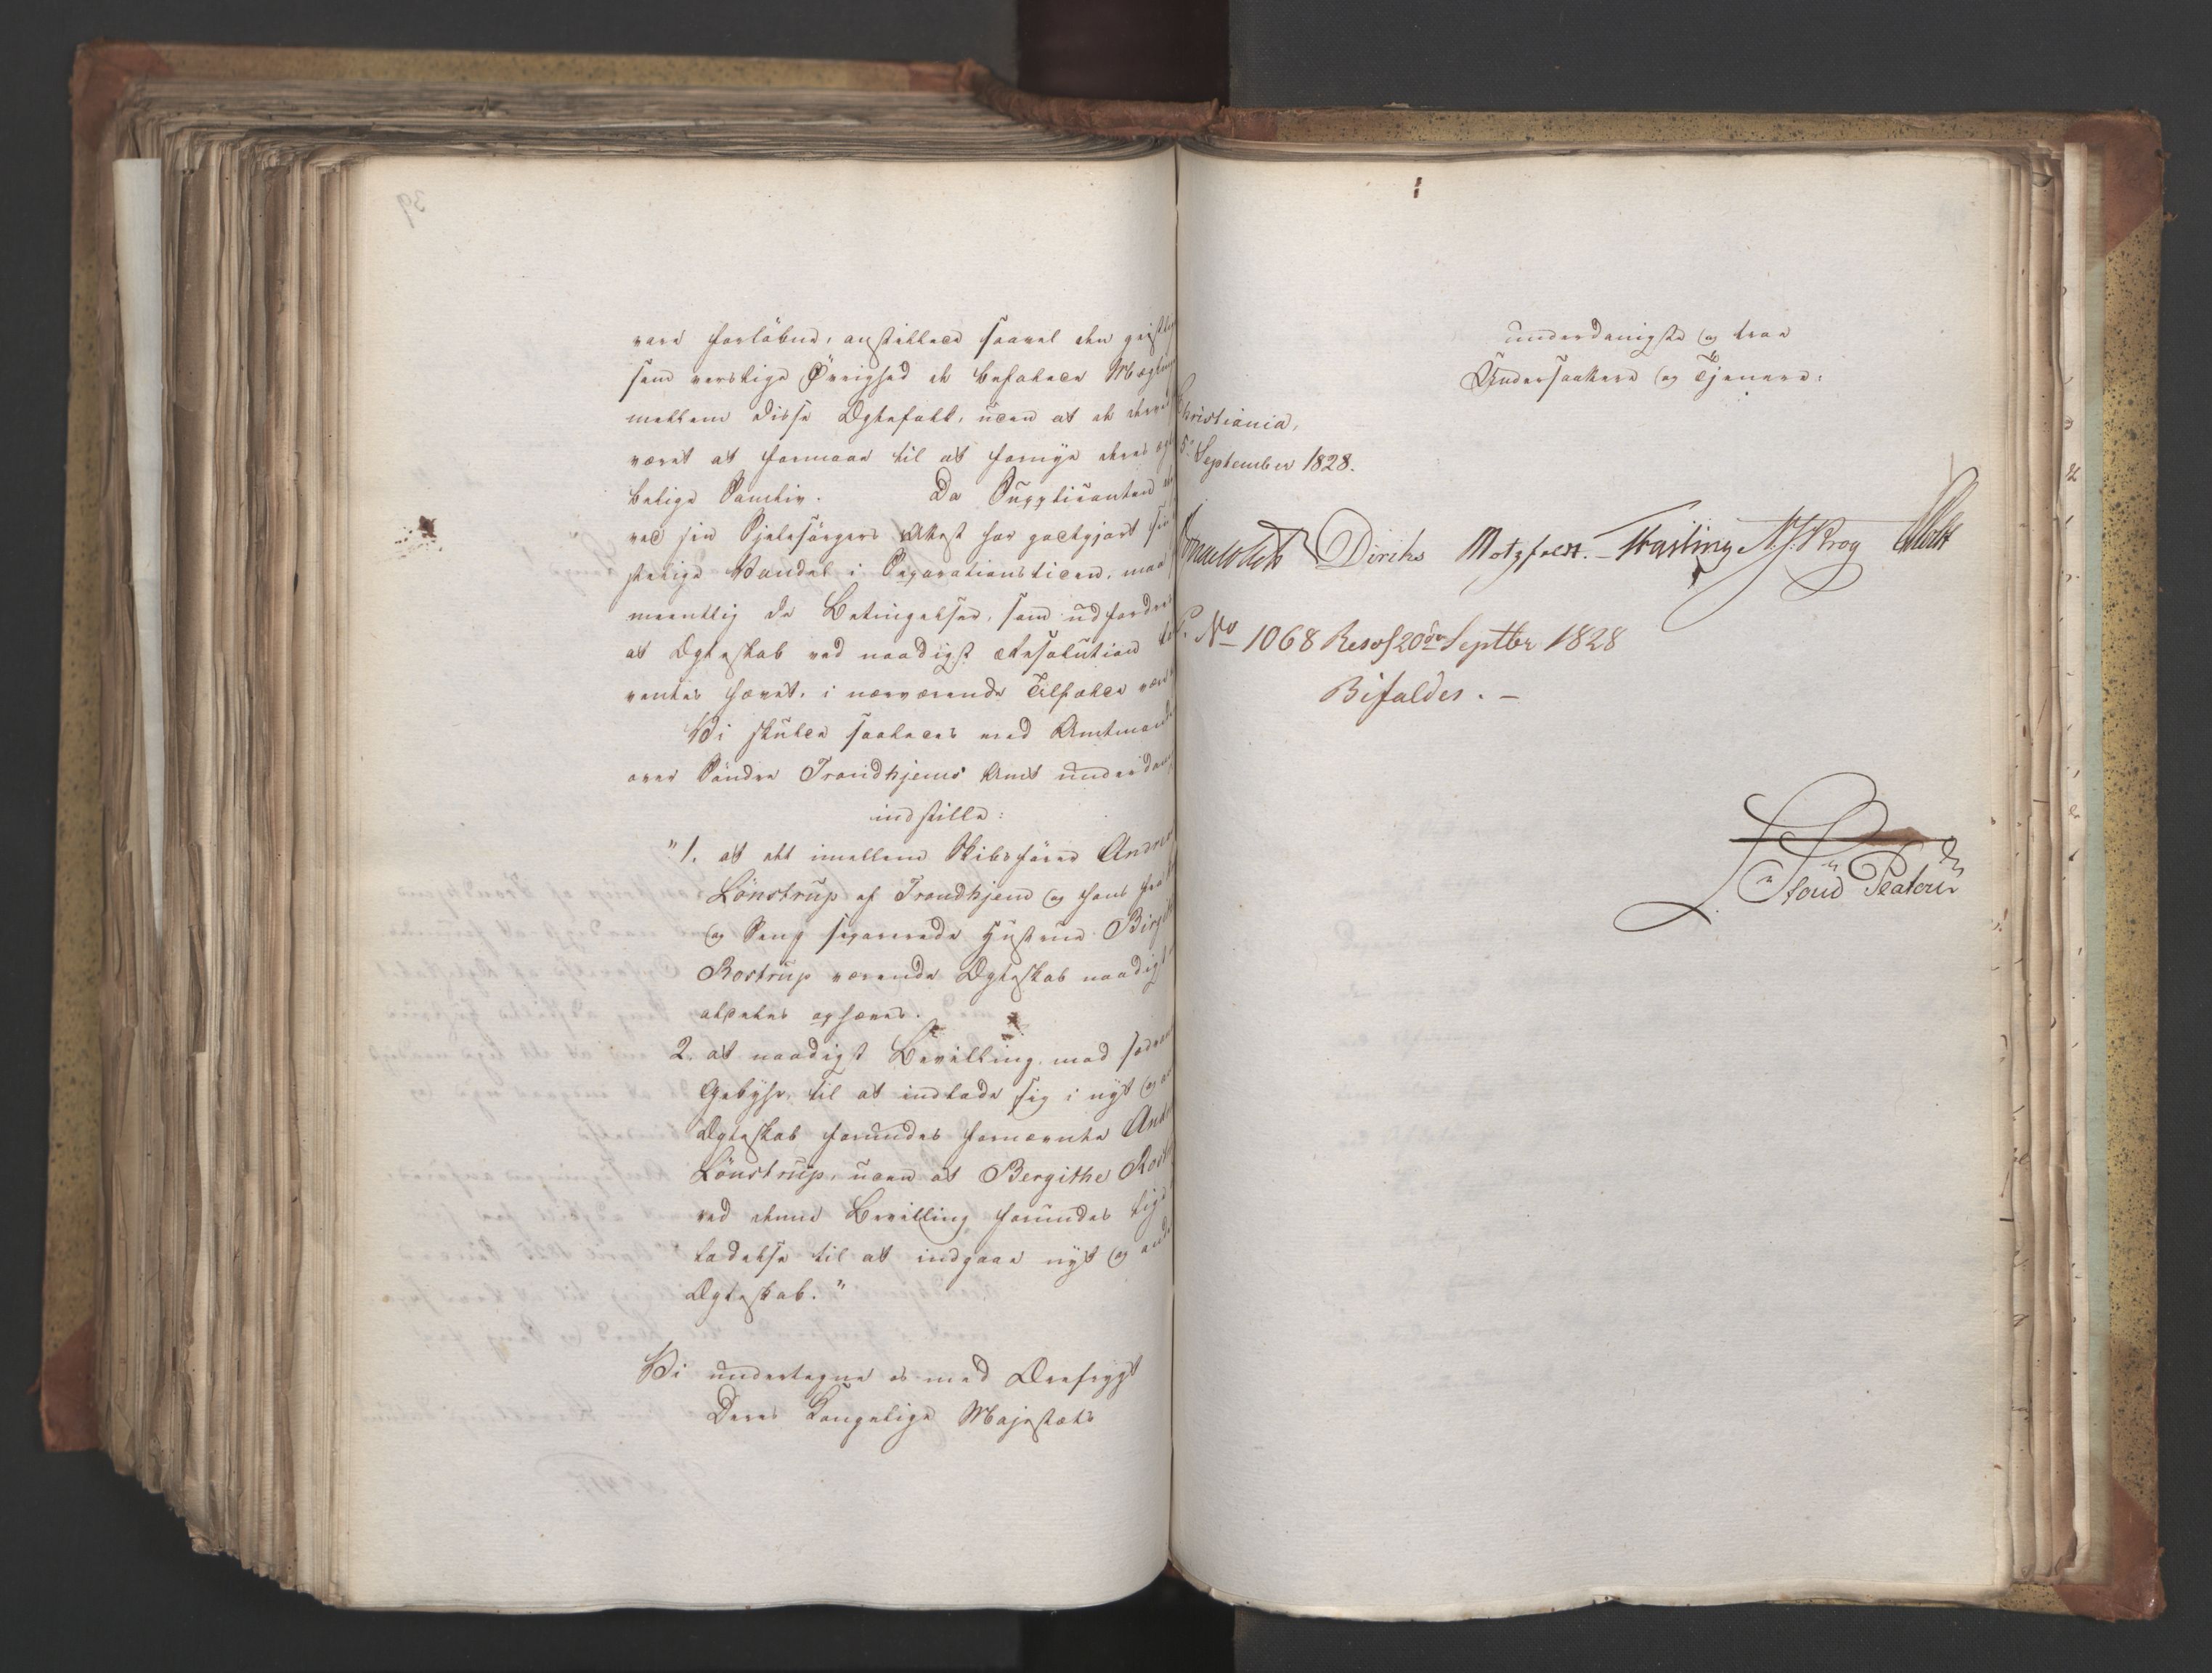 vare forløbne, anstillede saavel den geistlig
som verslige Øvrighed de befalede Mægling
mellem disse Ægtefolk, uden at de derved
været at formaae til at fornye deres ægte
kelige Samliv. Da Supplicanten
ved sin Sjelesørgers Attest har godtgjort sin
stelige Vandel i Separationstiden, maa
meentlig de Betingelser, som udfordres
at Ægteskab ved naadigst Resolution
ventes hævet, i nærværende Tilfælde være
Vi skulle saaledes med Amtmanden
over Söndre Trondhjems Amt underdanig
indstille:
"1. at det imellem Skibsfører Andreas
Lönstrup af Trondhjem og hans fra
og Seng separerede Hustrue Birgithe
Rostrup værende Ægteskab naadigst
aldeles ophæves.
2. at naadigst Bevilling mod sædvan
Gebyhr, til at indlade sig i nyt og
Ægteskab forundes fornævnte And
Lönstrup, uden at Bergithe Rost
ved denne Bevilling forundes tig
ladelse til at indgaae nyt og ande
Ægteskab."
Vi undertegne os med Ærefrygt
Deres Kongelige Majestæts
39
underdanigste og troe
Undersaattere og Tjenere:
Christiania,
5. September 1828.
Diriks Motzfeldt. Fasting N. J. Krog
No 1068 Resol 20de Septbr 1828
Bifaldes. –